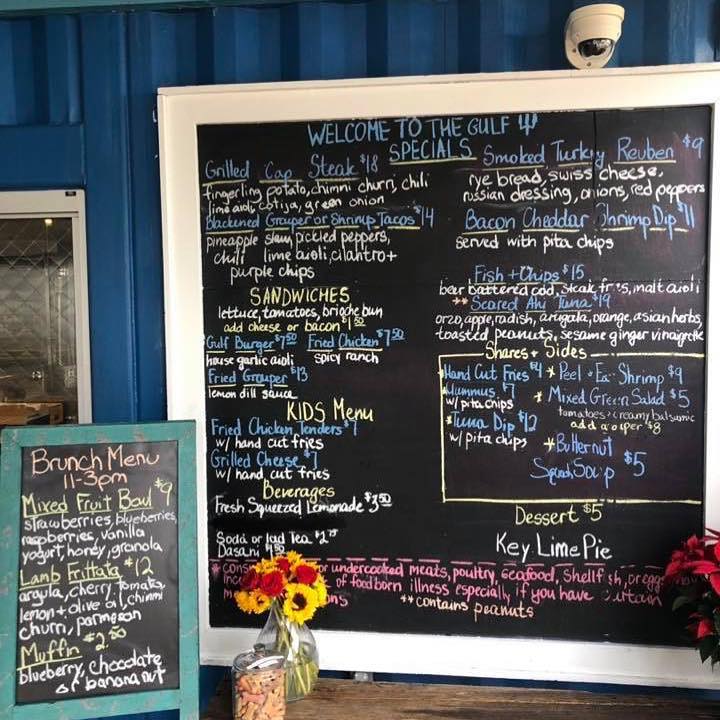 WELCOME TO THE GULF
SPECIALS
Grilled Cap Steak $18
fingerling potato, chimni churri, chili
lime aioli, cotija, green onion
Blackened Grouper or Shrimp Tacos $14
pineapple slaw, pickled peppers,
chili lime aioli, cilantro +
purple chips
SANDWICHES
lettuce, tomatoes, brioche bun
add cheese or bacon $1.50
Gulf Burger $7.50 Fried Chicken $7.50
house garlic aioli spicy ranch
Fried Grouper $13
lemon dill sauce
KIDS Menu
Fried Chicken Tenders $7
w/ hand cut fries
Grilled Cheese $7
w/ hand cut fries
Beverages
Fresh Squeezed Lemonade $3.50
Soda or Iced Tea
Dasani
Smoked Turkey Reuben $9
rye bread, swiss cheese,
russian dressing, onions, red peppers
Bacon Cheddar Shrimp Dip $11
served with pita chips
Fish + Chips $15
beer battered cod, steak fries, malt aioli
** Seared Ahi Tuna $19
orzo, apple, radish, arugala, orange, asian herbs
toasted peanuts, sesame ginger vinaigrette
Shares + Sides
Hand Cut Fries $4
* Hummus $7
w/ pita chips
* Tuna Dip $12
w/ pita chips
* Peel + Eat Shrimp $9
* Mixed Green Salad $5
tomatoes + creamy balsamic
add grouper $8
* Butternut
Squash Soup $5
Dessert $5
Key Lime Pie
or undercooked meats, poultry, seafood, shellfish, or eggs may
of foodborn illness especially if you have certain
** contains peanuts
Brunch Menu
11-3pm
Mixed Fruit Bowl $9
strawberries, blueberries,
raspberries, vanilla
yogurt, honey, granola
Lamb Frittata $12
argula, cherry tomato,
lemon + olive oil, chimni
churri, parmesan
Muffin $2.50
blueberry, chocolate
or banana nut